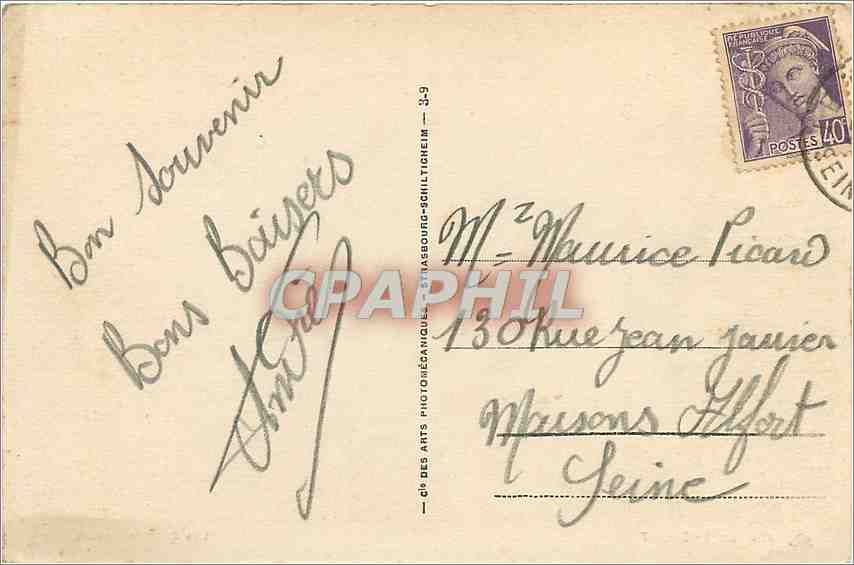 Bon Souvenir
Bons Baisers
André
CPAPHIL
— Cie DES ARTS PHOTOMÉCANIQUES — STRASBOURG-SCHILTIGHEIM — 3-9
RÉPUBLIQUE
FRANÇAISE
POSTES 40F
SEINE
Mr Maurice Picard
130 Rue Jean Janvier
Maisons Alfort
Seine